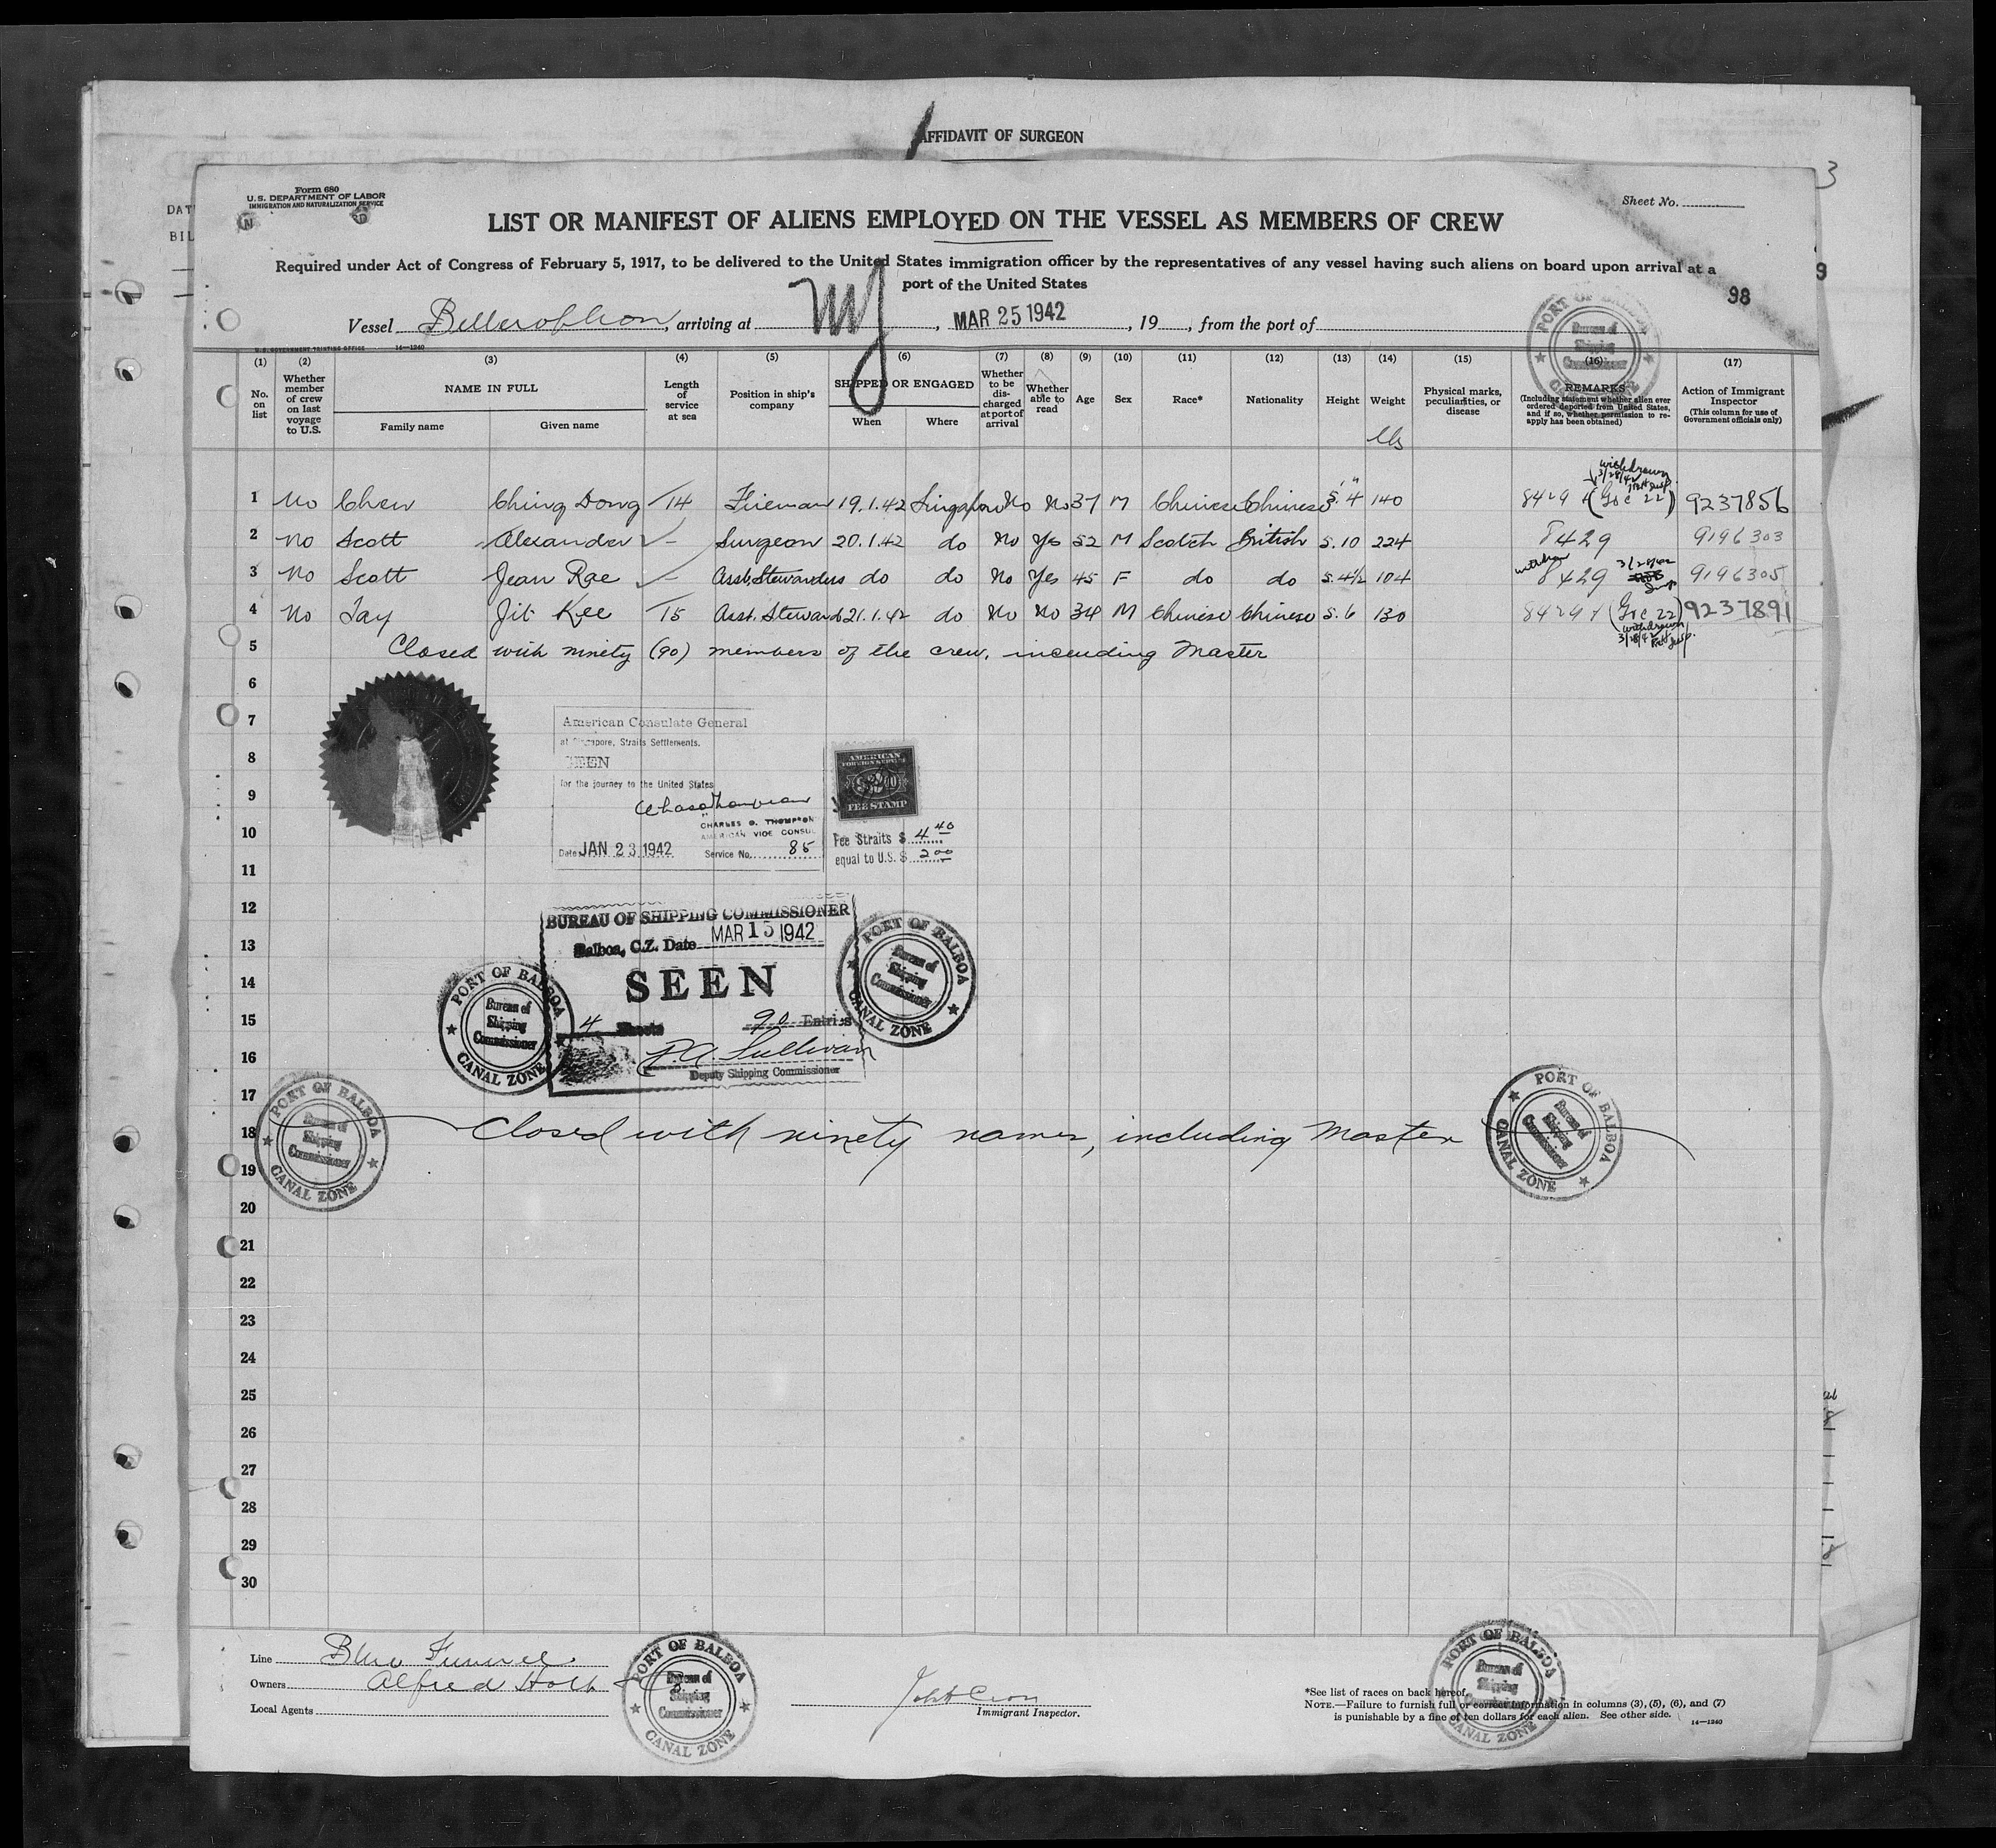 AFFIDAVIT OF SURGEON
3
DAT
BIL
Form 680
U.S. DEPARTMENT OF LABOR
IMMIGRATION AND NATURALIZATION SERVICE
Sheet No.
LIST OR MANIFEST OF ALIENS EMPLOYED ON THE VESSEL AS MEMBERS OF CREW
Required under Act of Congress of February 5, 1917, to be delivered to the United States immigration officer by the representatives of any vessel having such aliens on board upon arrival at a
port of the United States
98
Vessel Bellerophon, arriving at NY, MAR 25 1942, 19, from the port of
U.S. GOVERNMENT PRINTING OFFICE 14—1240
PORT OF BALBOA Bureau of Shipping Commissioner
(1) (2) (3) (4) (5) (6) (7) (8) (9) (10) (11) (12) (13) (14) (15) (16) (17)
No. on list
Whether member of crew on last voyage to U.S.
NAME IN FULL
Family name Given name
Length of service at sea
Position in ship's company
SHIPPED OR ENGAGED
When Where
Whether to be discharged at port of arrival
Whether able to read
Age
Sex
Race*
Nationality
Height
Weight
lbs
Physical marks, peculiarities, or disease
REMARKS
(Including statement whether alien ever ordered deported from United States, and if so, whether permission to reapply has been obtained)
Action of Immigrant Inspector
(This column for use of Government officials only)
withdrawn
3/28/42
1 No Chew Ching Dong 14 Fireman 19.1.42 Singapore No No 37 M Chinese Chinese 5' 4" 140 8429 + (Gse 22) 9237856
2 No Scott Alexander - Surgeon 20.1.42 do No Yes 52 M Scotch British 5.10 224 8429 9196303
3 No Scott Jean Rae - Asst. Stewardess do do No Yes 45 F do do 5.4½ 104 8429 3/28/42 9196305
4 No Tay Jit Kee 15 Asst. Steward 21.1.42 do No No 34 M Chinese Chinese 5.6 130 8429 + (Gse 22) 9237891
withdrawn
3/28/42
5 Closed with ninety (90) members of the crew, including Master
6
7
8
9
10
11
12
13
14
15
16
17
18
19
20
21
22
23
24
25
26
27
28
29
30
American Consulate General
at Singapore, Straits Settlements.
SEEN
for the journey to the United States
CHARLES O. THOMPSON
AMERICAN VICE CONSUL
Date JAN 23 1942 Service No. 85
AMERICAN
FOREIGN SERVICE
FEE STAMP
Fee Straits $ 4.40
equal to U.S. $ 2.00
BUREAU OF SHIPPING COMMISSIONER
Balboa, C.Z. Date MAR 15 1942
SEEN
4 Sheets 90 Entries
P.A. Sullivan
Deputy Shipping Commissioner
PORT OF BALBOA Bureau of Shipping Commissioner CANAL ZONE
PORT OF BALBOA Bureau of Shipping Commissioner CANAL ZONE
PORT OF BALBOA Bureau of Shipping Commissioner CANAL ZONE
Closed with ninety names, including Master
PORT OF BALBOA Bureau of Shipping Commissioner CANAL ZONE
Line Blue Funnel
Owners Alfred Holt & Co.
Local Agents
PORT OF BALBOA Bureau of Shipping Commissioner CANAL ZONE
Immigrant Inspector.
PORT OF BALBOA Bureau of Shipping Commissioner CANAL ZONE
*See list of races on back hereof.
NOTE.—Failure to furnish full or correct information in columns (3), (5), (6), and (7)
is punishable by a fine of ten dollars for each alien. See other side.
14—1240